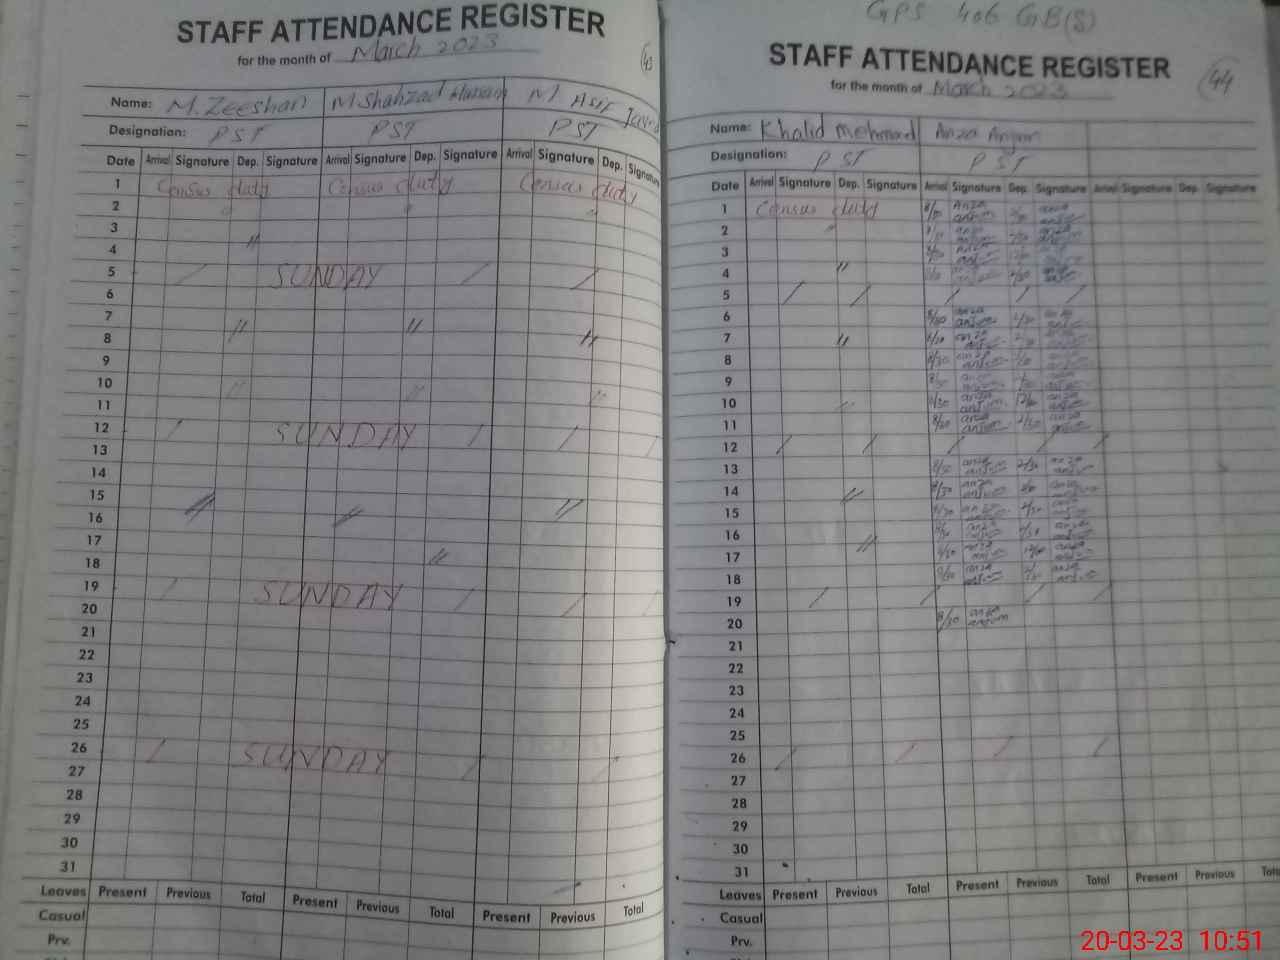 STAFF ATTENDANCE REGISTER
for the month of March 2023
43
Name: M. Zeeshan M. Shahzad Hussain M Asif Javed
Designation: PST PST PST
Date Arrival Signature Dep. Signature Arrival Signature Dep. Signature Arrival Signature Dep. Signature
1 Census duty Census duty Census duty
2
3
4 "
5 SUNDAY
6
7 " "
8 "
9
10 " " "
11
12 SUNDAY
13
14
15 " "
16 "
17 "
18
19 SUNDAY
20
21
22
23
24
25
26 SUNDAY
27
28
29
30
31
Leaves Present Previous Total Present Previous Total Present Previous Total
Casual
Prv.
GPS 406 GB(S)
STAFF ATTENDANCE REGISTER
for the month of March 2023
44
Name: Khalid Mehmood Anza Anjum
Designation: PST PST
Date Arrival Signature Dep. Signature Arrival Signature Dep. Signature Arrival Signature Dep. Signature
1 Census duty 8/30 anza anjum anza anjum
2 anza anjum
3 anza anjum
4 "
5
6 8/30 anza anjum 2/30 anza anjum
7 " 8/30 anza anjum
8 8/30 anza anjum
9 8/30
10 " 8/30 anza anjum anza anjum
11 8/30 anza anjum 2/30 anza anjum
12
13 8/30 anza anjum 2/30 anza anjum
14 " 8/30 anza anjum anza anjum
15 8/30 anza anjum 2/30 anza anjum
16 anza anjum 2/30 anza anjum
17 " 8/30 anza anjum anza anjum
18 anza anjum anza anjum
19
20 8/30 anza anjum
21
22
23
24
25
26
27
28
29
30
31
Leaves Present Previous Total Present Previous Total Present Previous
Casual
Prv.
20-03-23 10:51